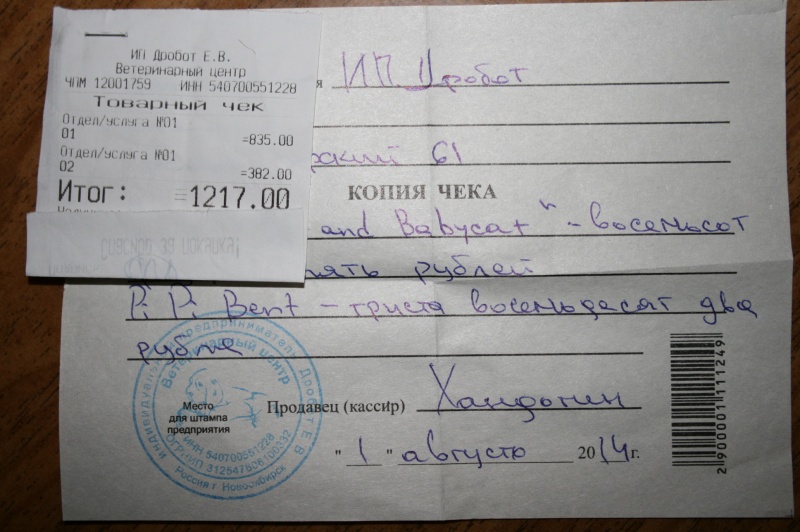 ИП Дробот Е.В.
Ветеринарный центр
ЧПМ 12001759 ИНН 540700551228
Товарный чек
Отдел/услуга №01
01 =835.00
Отдел/услуга №01
02 =382.00
Итог: =1217.00
Спасибо за покупку!
я ИП Дробот
61
КОПИЯ ЧЕКА
and Babycat" - восемьсот
пять рублей
P. P. Bent - триста восемьдесят два
рубля
Место
для штампа
предприятия
Индивидуальный предприниматель Дробот Е.В.
Ветеринарный центр
ИНН 540700551228
ОГРНИП 312547606100332
Россия г. Новосибирск
Продавец (кассир)
"1" августа 2014 г.
2900001111249